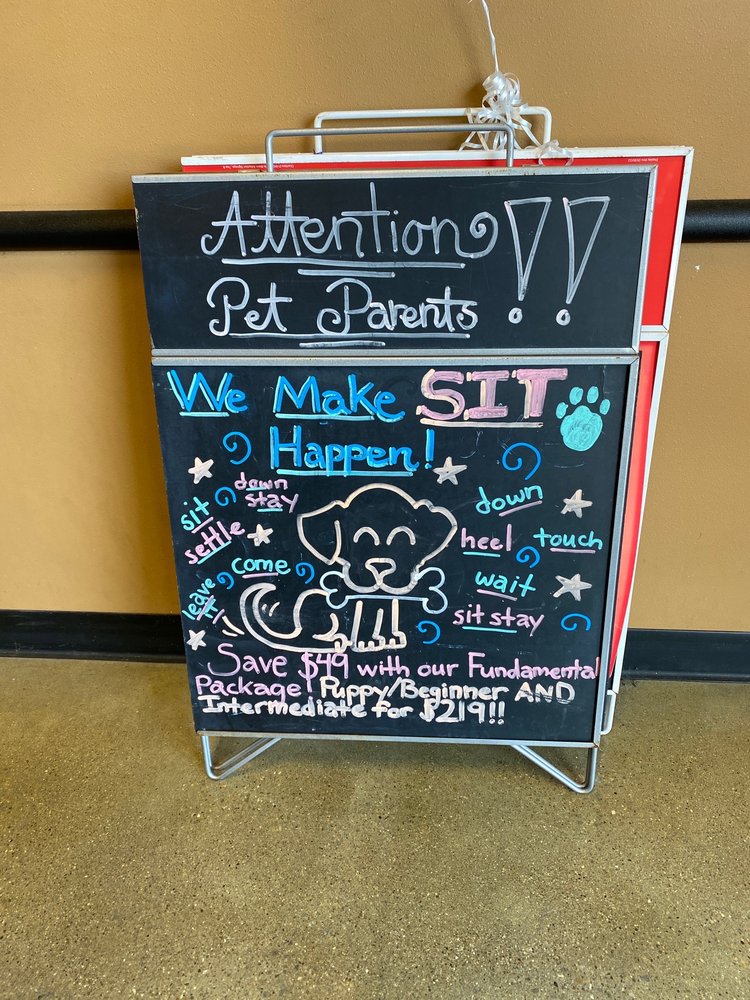 Attention!!
Pet Parents
We Make SIT
Happen!
down
stay
sit
settle
come
leave
it
down
heel
touch
wait
sit stay
Save $49 with our Fundamental
Package! Puppy/Beginner AND
Intermediate for $219!!